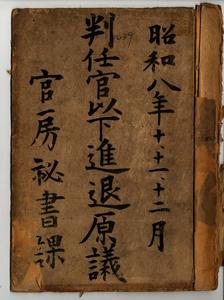 昭和八年十、十一、十二月
判任官以下進退原議
官房秘書課